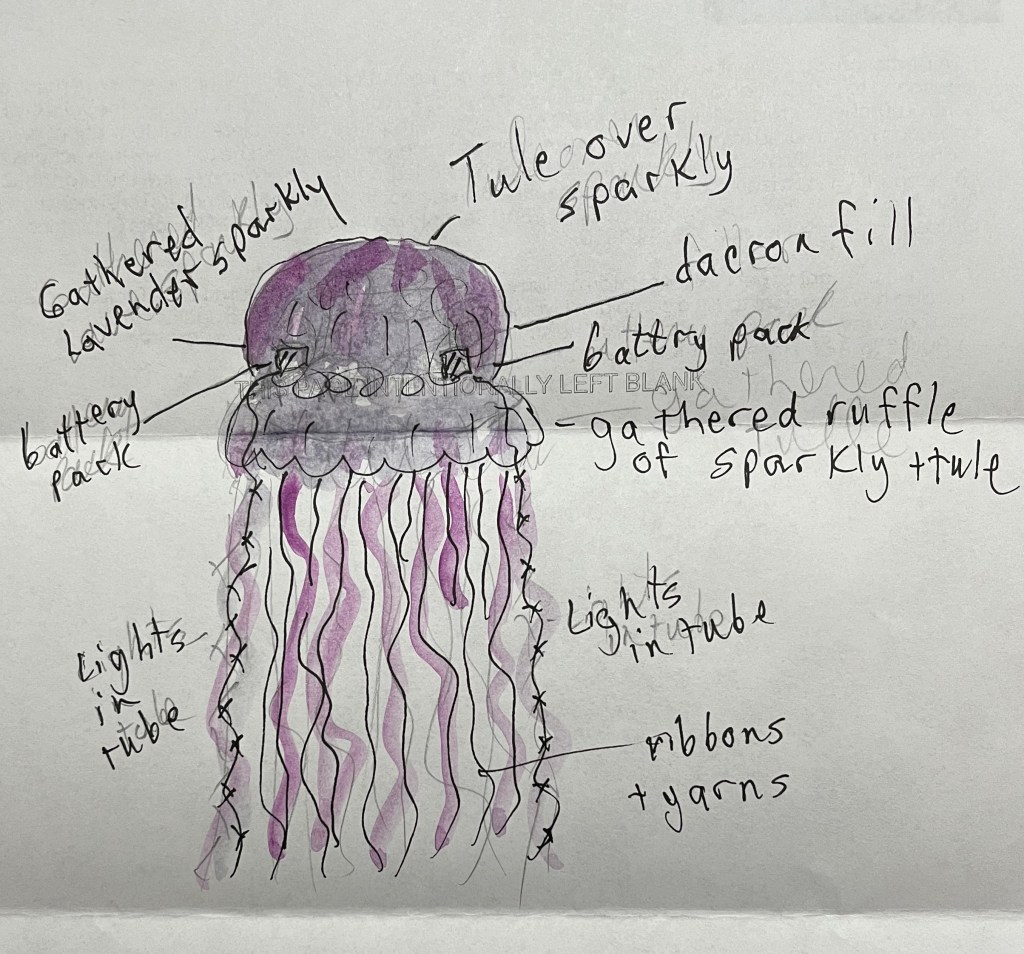 Tule over
sparkly
Gathered
Lavender sparkly
dacron fill
battry pack
battery
pack
gathered ruffle
of sparkly + tule
Lights
in
tube
Lights
in tube
ribbons
+ yarns